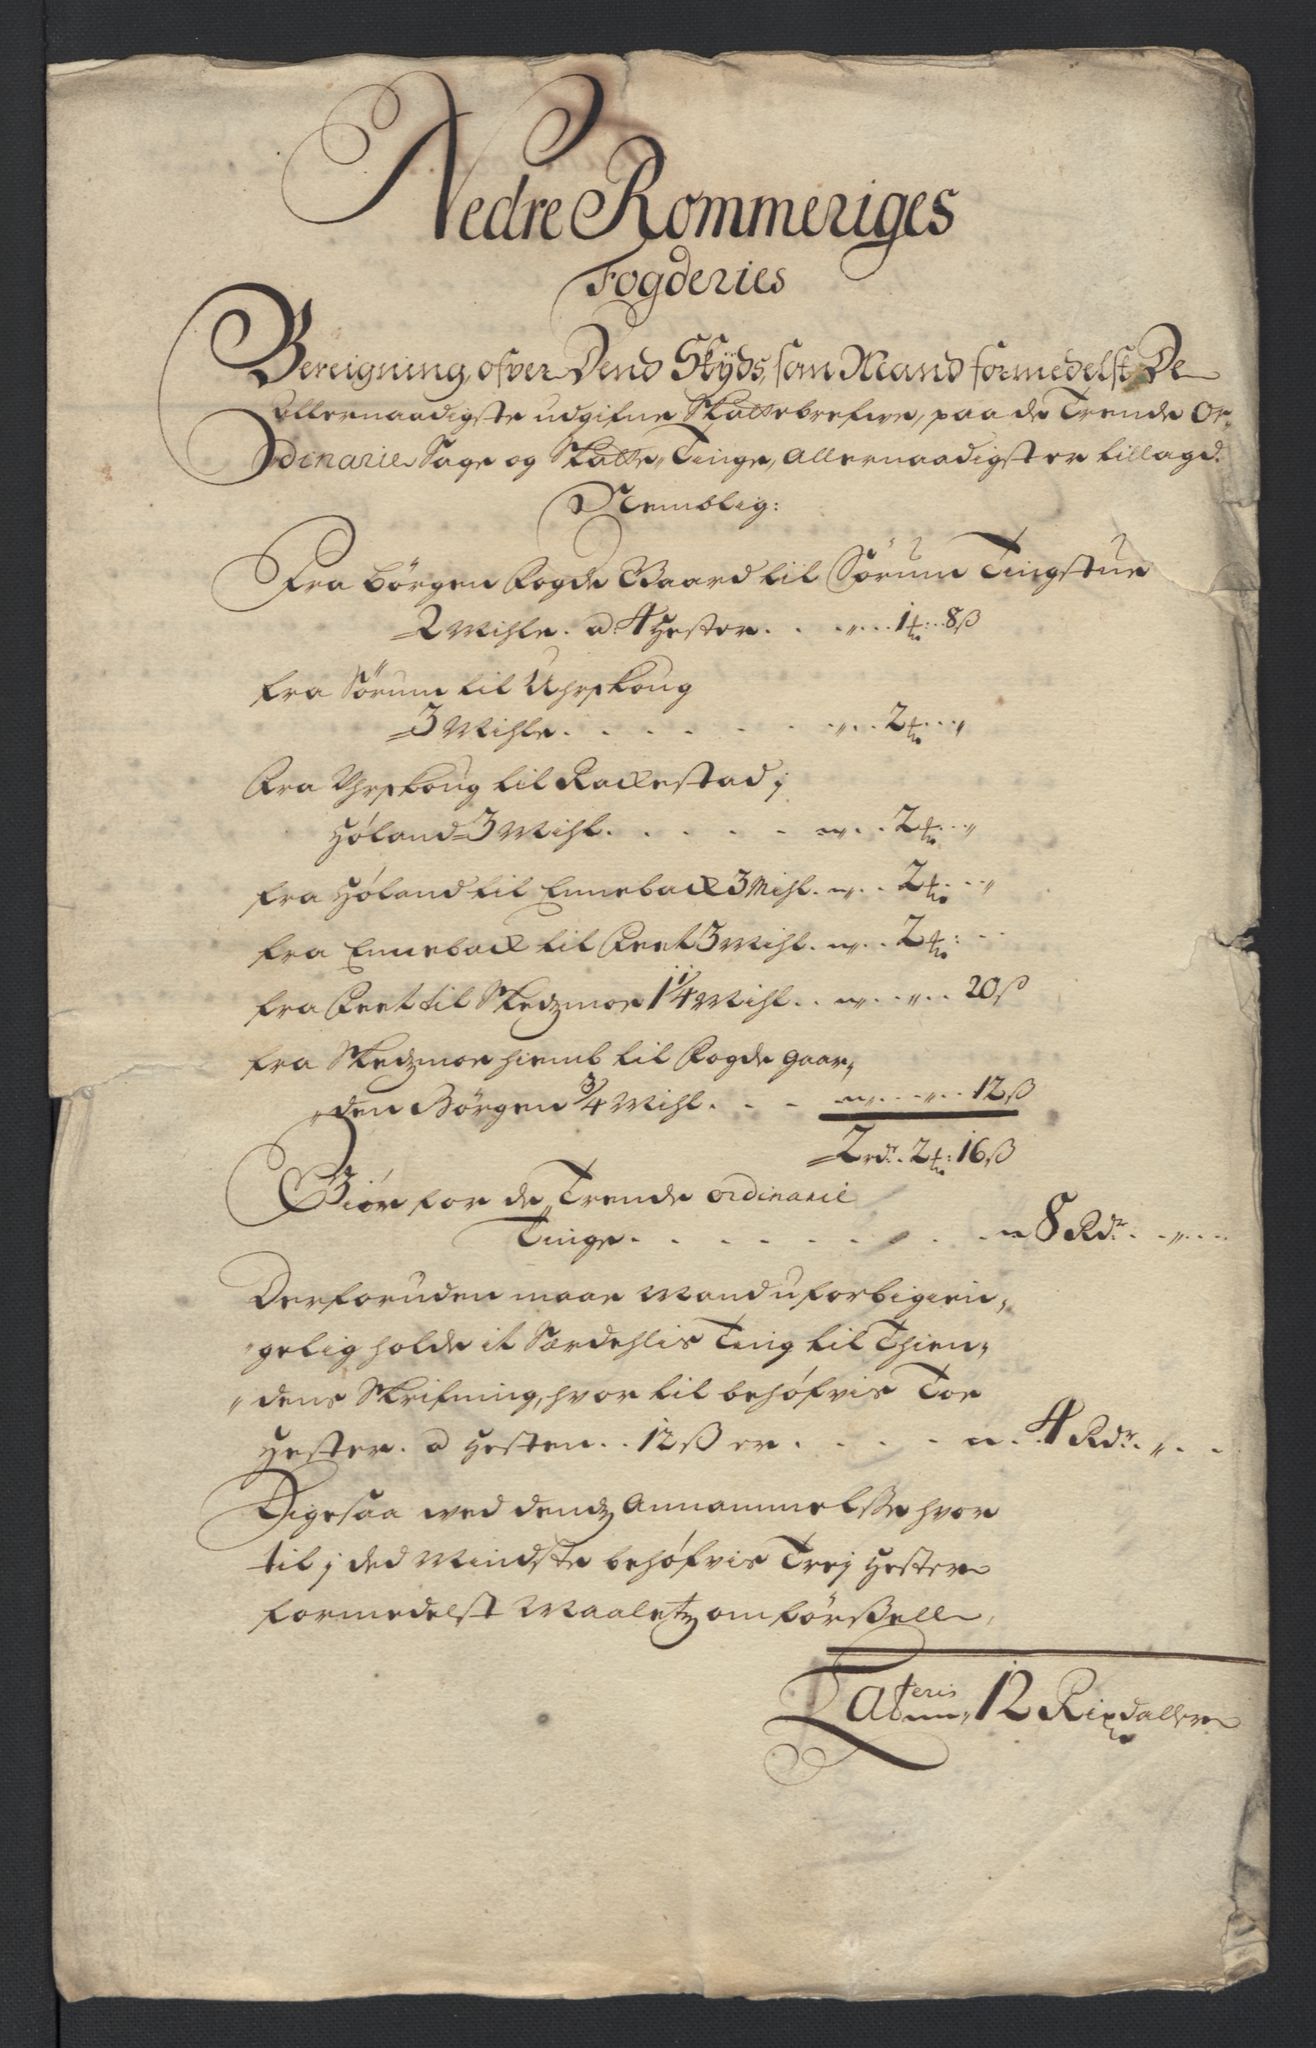 Nedre Rommeriges
Fogderies
Bereigning, ofver Dend Skyds, som Mand formedelst De
Allernaadigste udgifne Skattebrefve, paa de Trende Or-
dinarie Sage og Skatte Tinge, Allernaadigst er tillagd.
Nemblig:
Fra Børgen Fogde Gaard til Sørum Tingstue
2 Mihle. a 4 Hester. . . „ . . 1 : 8 ß
fra Sørum til Uhrskoug
3 Mihle. . . . . . . „ . . 2 . . „
Fra Uhrskoug til Rackestad j
Høland 3 Mihl. . . . . . „ . . 2 . . „
fra Høland til Enneback 3 Mihl. „ . . 2 . . „
fra Enneback til Feet 3 Mihl. „ . . 2 : . .
fra Feet til Skedzmoe 1 1/4 Mihl. . „ . . „ . . 20 ß
fra Skedzmoe hiemb til Fogde Gaar„
„den Børgen 3/4 Mihl. . . . „ . . „ . . 12 ß
2 rdr. 2 : 16 ß
Giør for de Trende ordinarie
Tinge. . . . . . . . . „ 8 Rdr. . „ . .
Derforuden maae Mand uforbigien„
„gelig holde it Særdehlis Ting til Thien„
„dens Skrifning, hvor til behøfvis Toe
Hester. a Hesten. . 12 ß er. . . . . „ . 4 Rdr. „ . .
Ligesaa ved dendz Annammelsse hvor
til j ded Mindste behøfvis Trej Hester
formedelst Maaletz omførssell
Lateris 12 Rixdaller